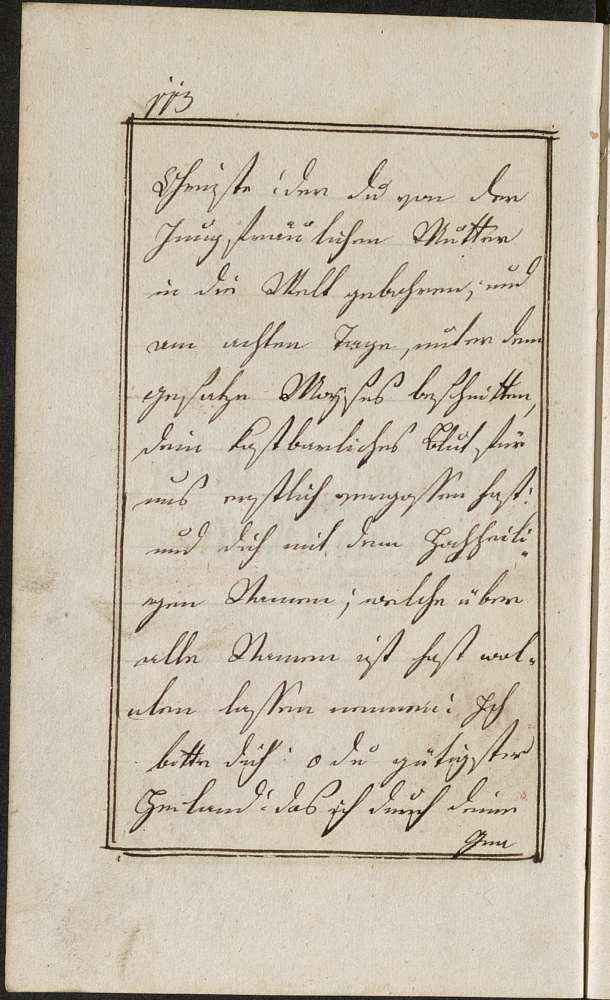 113
Christe : der du von der
Jungfräulichen Mutter
in die Welt gebohren, und
am achten Tage, unter dem
gesatze Moyses beschnitten,
dein kostbarliches Blut für
uns erstlich vergossen hast:
und dich mit dem Hochheili„
gen Namen; welche über
alle Namen ist hast wol„
len lassen nennen: Ich
bitte dich: o du gütigster
Heiland: das ich durch deine